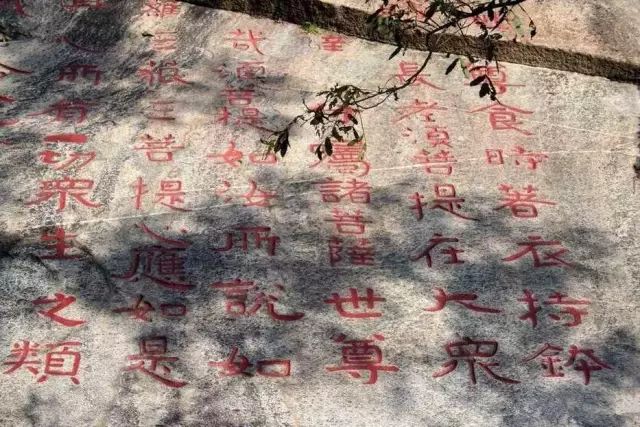 尊食時著衣持鉢
長老湏菩提在大衆
囑諸菩薩世尊
哉湏菩提如汝所説如
羅三藐三菩提心應如是
心所有一切衆生之類